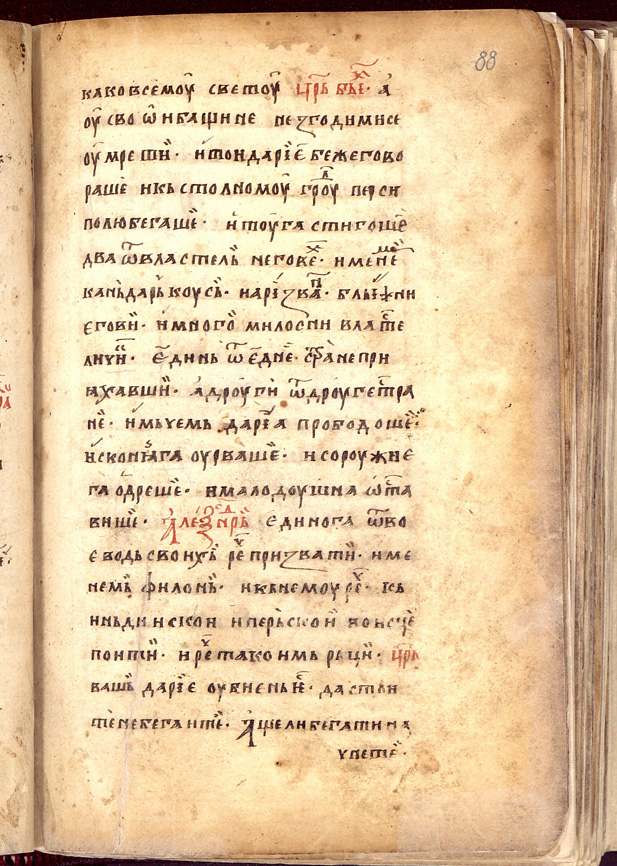 88
како всемоу светоу црь бых҃· а
оу сво ѡнба щине не згодимисе
оумрети· и тои дарїе бежегово
раше и кь столномоу гроу перси
полюбегаше· и тоуга стигоше
два ѿ властель негове· имене
каньдаркоусь· и арїзва· ближни
егови· и много милосни власте
личии· единь ѿ едне стране при
ꙗхавши· а дроуги ѿ дроуге стра
не· и мьчемь дарїа прободоше·
и с конꙗ га оурваше· и с ороужие
га одреше· и мало доушна ѡста
више· Алеѯндрь единога ѿ во
еводь своихь рече призвати· име
немь филонь· и кь немоу рече· кь
ииндинскои и перьскои воисце
поити· и рече тако имь рьци· црь
вашь дарїе оубиень е· да стои
те не бегаите· Аще ли бегати на
чнете·